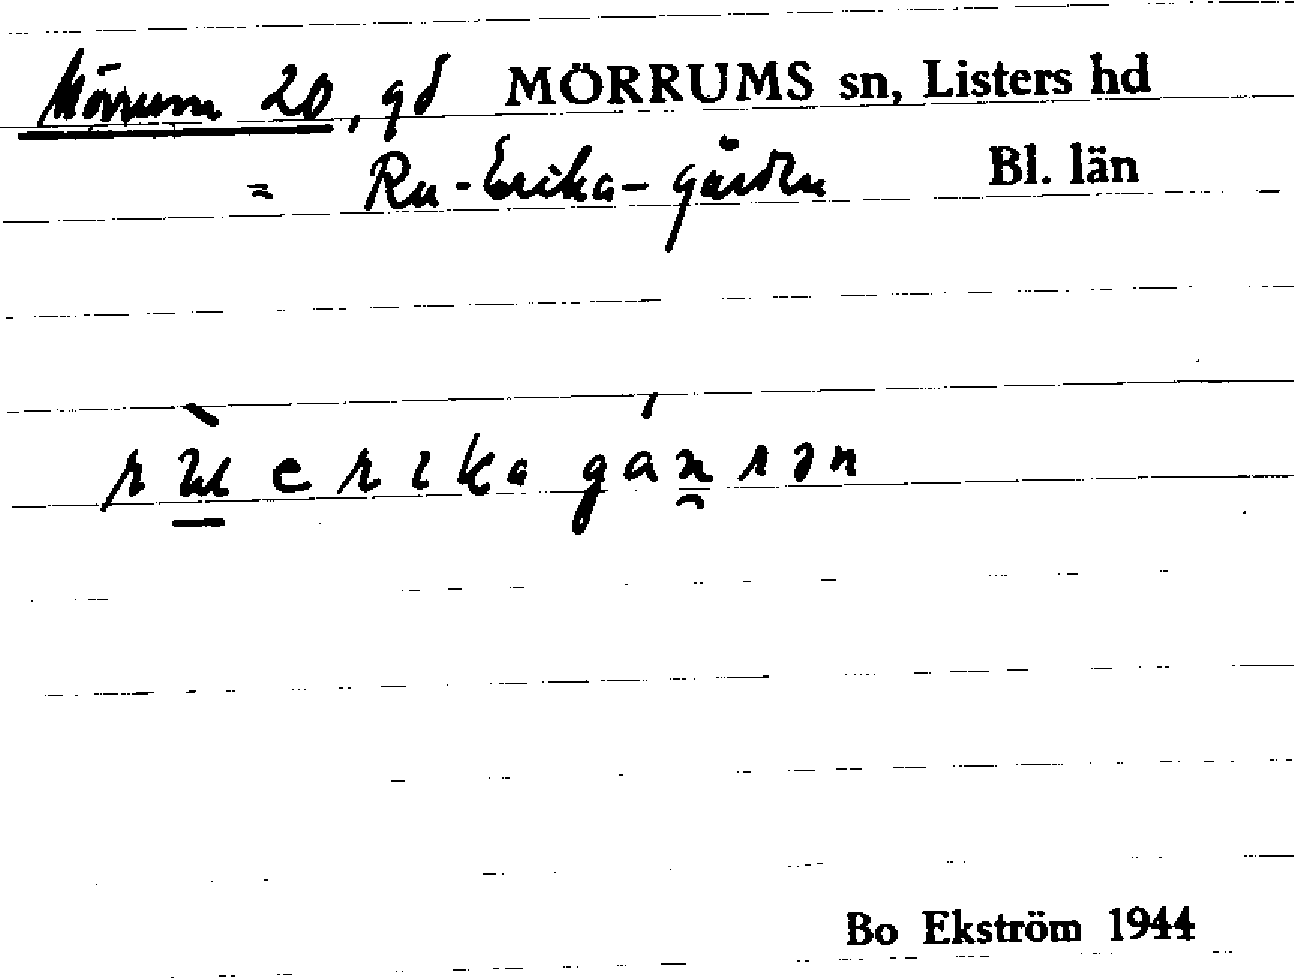 Mörrum 20, gd MÖRRUMS sn, Listers hd
= Ru-Erika-gården Bl. län
Bo Ekström 1944